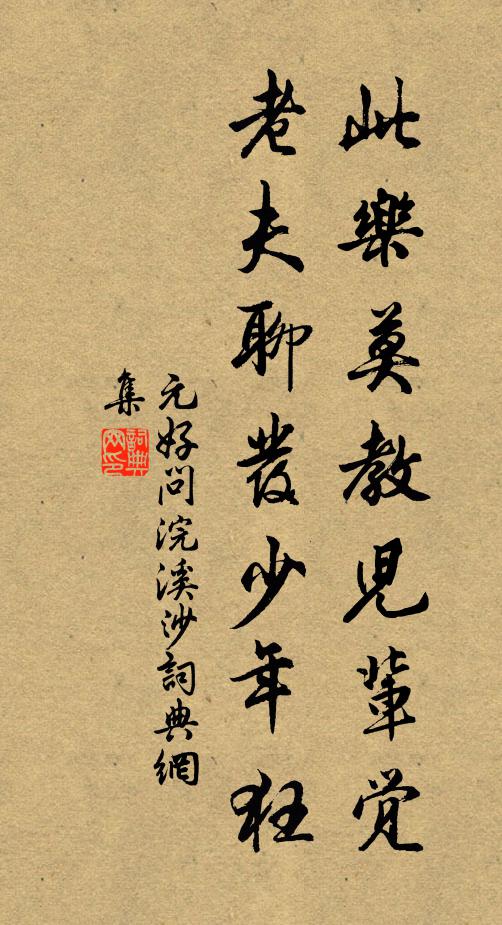 此樂莫教兒輩觉
老夫聊發少年狂
元好問浣溪沙詞典網
集
詞典網印